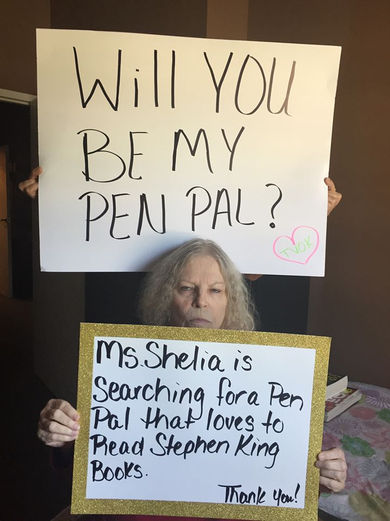 Will YOU
BE MY
PEN PAL?
TVOK
Ms. Shelia is
Searching for a Pen
Pal that loves to
Read Stephen King
Books.
Thank you!